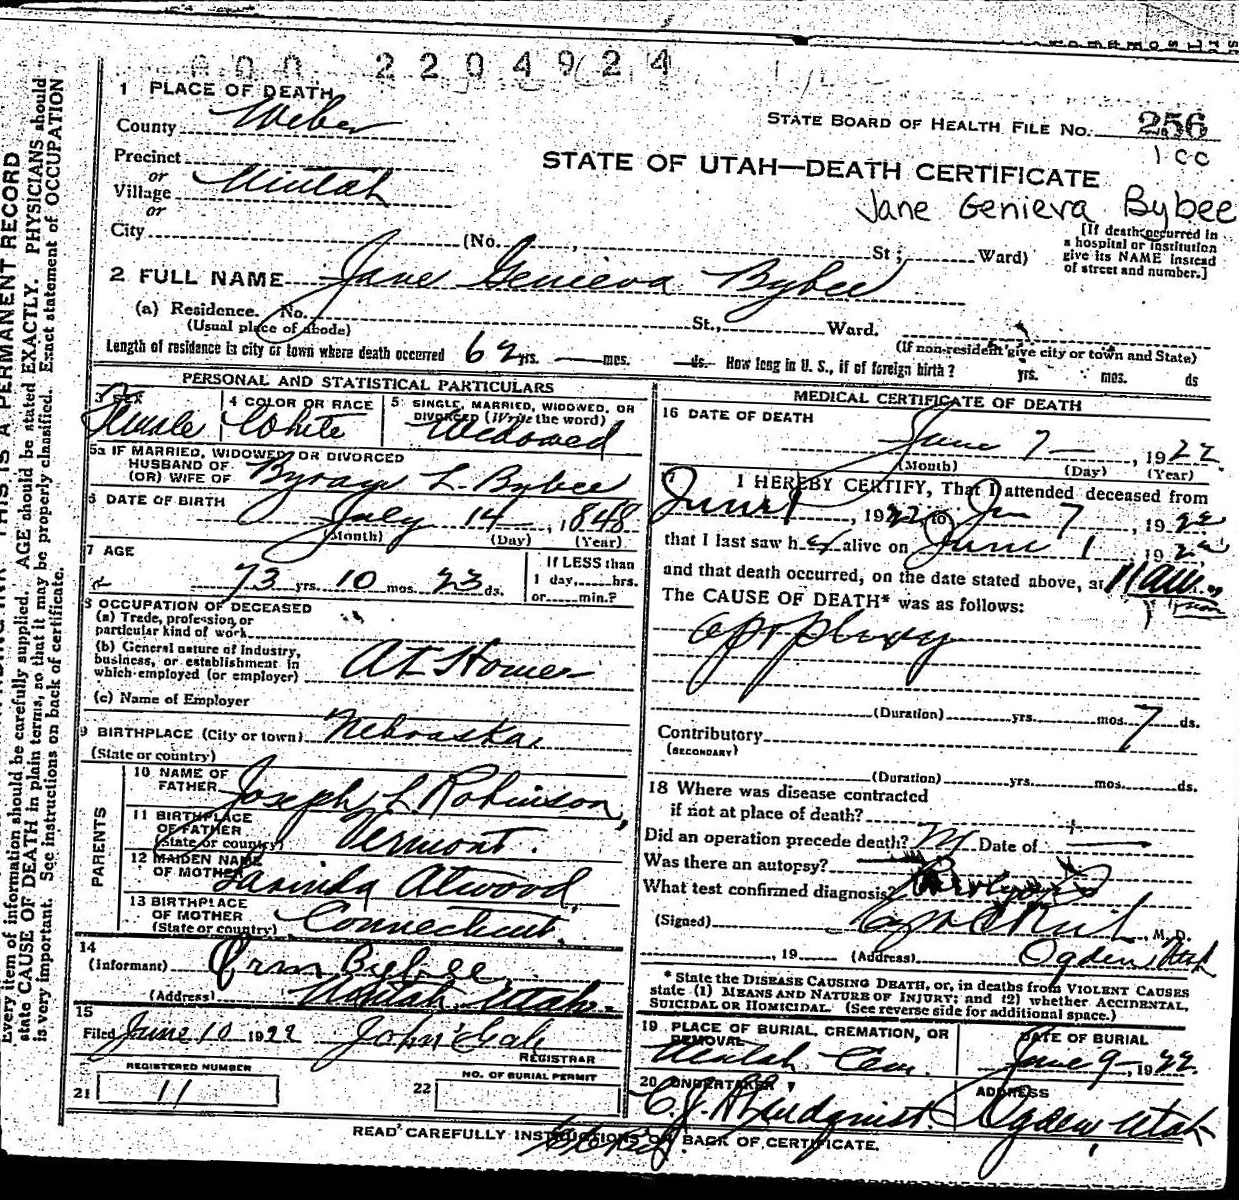 2204924
1 PLACE OF DEATH
County Weber
STATE BOARD OF HEALTH FILE NO. 256
1 cc
Precinct
or
Village Uintah
or
STATE OF UTAH—DEATH CERTIFICATE
Jane Genieva Bybee
City (No. , St; Ward)
[If death occurred in
a hospital or institution
give its NAME instead
of street and number.]
2 FULL NAME Jane Genieva Bybee
(a) Residence. No. St., Ward.
(Usual place of abode)
(If non-resident give city or town and State)
Length of residence is city or town where death occurred 62 yrs. — mos. — ds. How long in U. S., if of foreign birth? yrs. mos. ds
PERSONAL AND STATISTICAL PARTICULARS
3 SEX Female
4 COLOR OR RACE White
5 SINGLE, MARRIED, WIDOWED, OR
DIVORCED (Write the word) Widowed
5a IF MARRIED, WIDOWED OR DIVORCED
HUSBAND OF
(OR) WIFE OF L. Bybee
6 DATE OF BIRTH
July 14, 1848
(Month) (Day) (Year)
7 AGE
73 yrs. 10 mos. 23 ds.
If LESS than
1 day, hrs.
or min.?
8 OCCUPATION OF DECEASED
(a) Trade, profession, or
particular kind of work
(b) General nature of Industry,
business, or establishment in
which employed (or employer) At Home
(c) Name of Employer
9 BIRTHPLACE (City or town) Nebraska
(State or country)
PARENTS
10 NAME OF
FATHER Joseph L. Robinson,
11 BIRTHPLACE
OF FATHER
(State or country) Vermont.
12 MAIDEN NAME
OF MOTHER Atwood,
13 BIRTHPLACE
OF MOTHER
(State or country) Connecticut.
14
(Informant) Bybee
(Address) Uintah Utah.
15
Filed June 10 1922
REGISTRAR
REGISTERED NUMBER
21 11
NO. OF BURIAL PERMIT
22
MEDICAL CERTIFICATE OF DEATH
16 DATE OF DEATH
June 7 — , 1922
(Month) (Day) (Year)
17 I HEREBY CERTIFY, That I attended deceased from
June 1, 1922 to Jun 7, 1922
that I last saw her alive on June 1, 1922
and that death occurred, on the date stated above, at 11 am
The CAUSE OF DEATH* was as follows:
apoplexy
(Duration) yrs. mos. 7 ds.
Contributory
(SECONDARY)
(Duration) yrs. mos. ds.
18 Where was disease contracted
if not at place of death?
Did an operation precede death? Date of —
Was there an autopsy? —
What test confirmed diagnosis?
(Signed) , M. D.
, 19 (Address) Ogden Utah
* State the DISEASE CAUSING DEATH, or, in deaths from VIOLENT CAUSES
state (1) MEANS AND NATURE OF INJURY; and (2) whether ACCIDENTAL,
SUICIDAL OR HOMICIDAL. (See reverse side for additional space.)
19 PLACE OF BURIAL, CREMATION, OR
REMOVAL
Uintah Cem.
DATE OF BURIAL
June 9, 1922.
20 UNDERTAKER
Lindquist.
ADDRESS
Ogden, Utah
READ CAREFULLY INSTRUCTIONS ON BACK OF CERTIFICATE.
THIS IS A PERMANENT RECORD
Every item of information should be carefully supplied. AGE should be stated EXACTLY. PHYSICIANS should
state CAUSE OF DEATH in plain terms, so that it may be properly classified. Exact statement of OCCUPATION
is very important. See instructions on back of certificate.